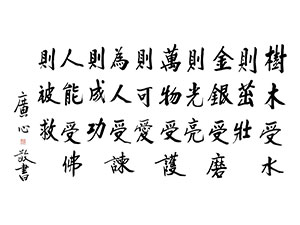 樹木受水
則茁壯
金銀受磨
則光亮
萬物受護
則可愛
為人受諫
則成功
人能受佛
則被救
廣心敬書